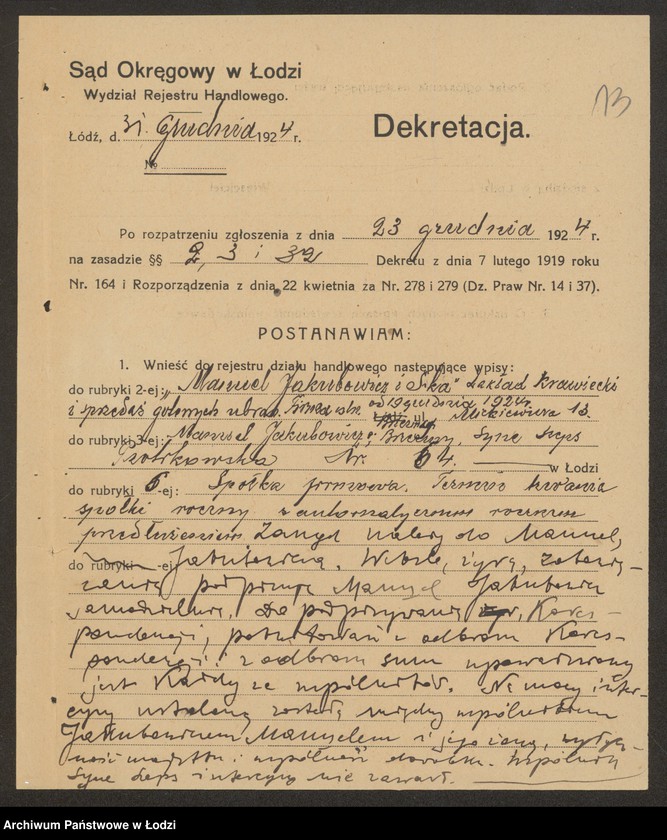 Sąd Okręgowy w Łodzi
Wydział Rejestru Handlowego.
13
Łódź, d. 31. Grudnia 1924 r.
Dekretacja.
№
Po rozpatrzeniu zgłoszenia z dnia 23 grudnia 1924 r.
na zasadzie §§ 2, 3 i 32 Dekretu z dnia 7 lutego 1919 roku
Nr. 164 i Rozporządzenia z dnia 22 kwietnia za Nr. 278 i 279 (Dz. Praw Nr. 14 i 37).
POSTANAWIAM:
1. Wnieść do rejestru działu handlowego następujące wpisy:
do rubryki 2-ej: „Manuel Jakubowicz i S-ka" zakład krawiecki
i sprzedaż gotowych ubrań. Firma istn. od 19 grudnia 1924r.
ul. Mickiewicza 13.
do rubryki 3-ej: Manuel Jakubowicz, Brzeziny, Syne Leps
Piotrkowska Nr. 64. w Łodzi
do rubryki 6-ej: Spółka firmowa. Termin trwania
spółki roczny z automatycznem rocznem
przedłużeniem. Zarząd należy do Manuel,
do rubryki -ej Jakubowicza. Weksle, żyra, zobowią-
zania podpisuje Manuel Jakubowicz
samodzielnie, do podpisywania Kores-
pondencji, pokwitowań i odbioru Kores-
pondencji i odbioru sum upoważniony
jest Każdy ze wspólników. Na mocy inter-
cyzy ustaloną została między wspólnikiem
Jakubowiczem Manuelem i jego żoną, wyłącz-
ność majątku i wspólność dorobku. Wspólnik
Syne Leps intercyzy nie zawarł.
Archiwum Państwowe w Łodzi